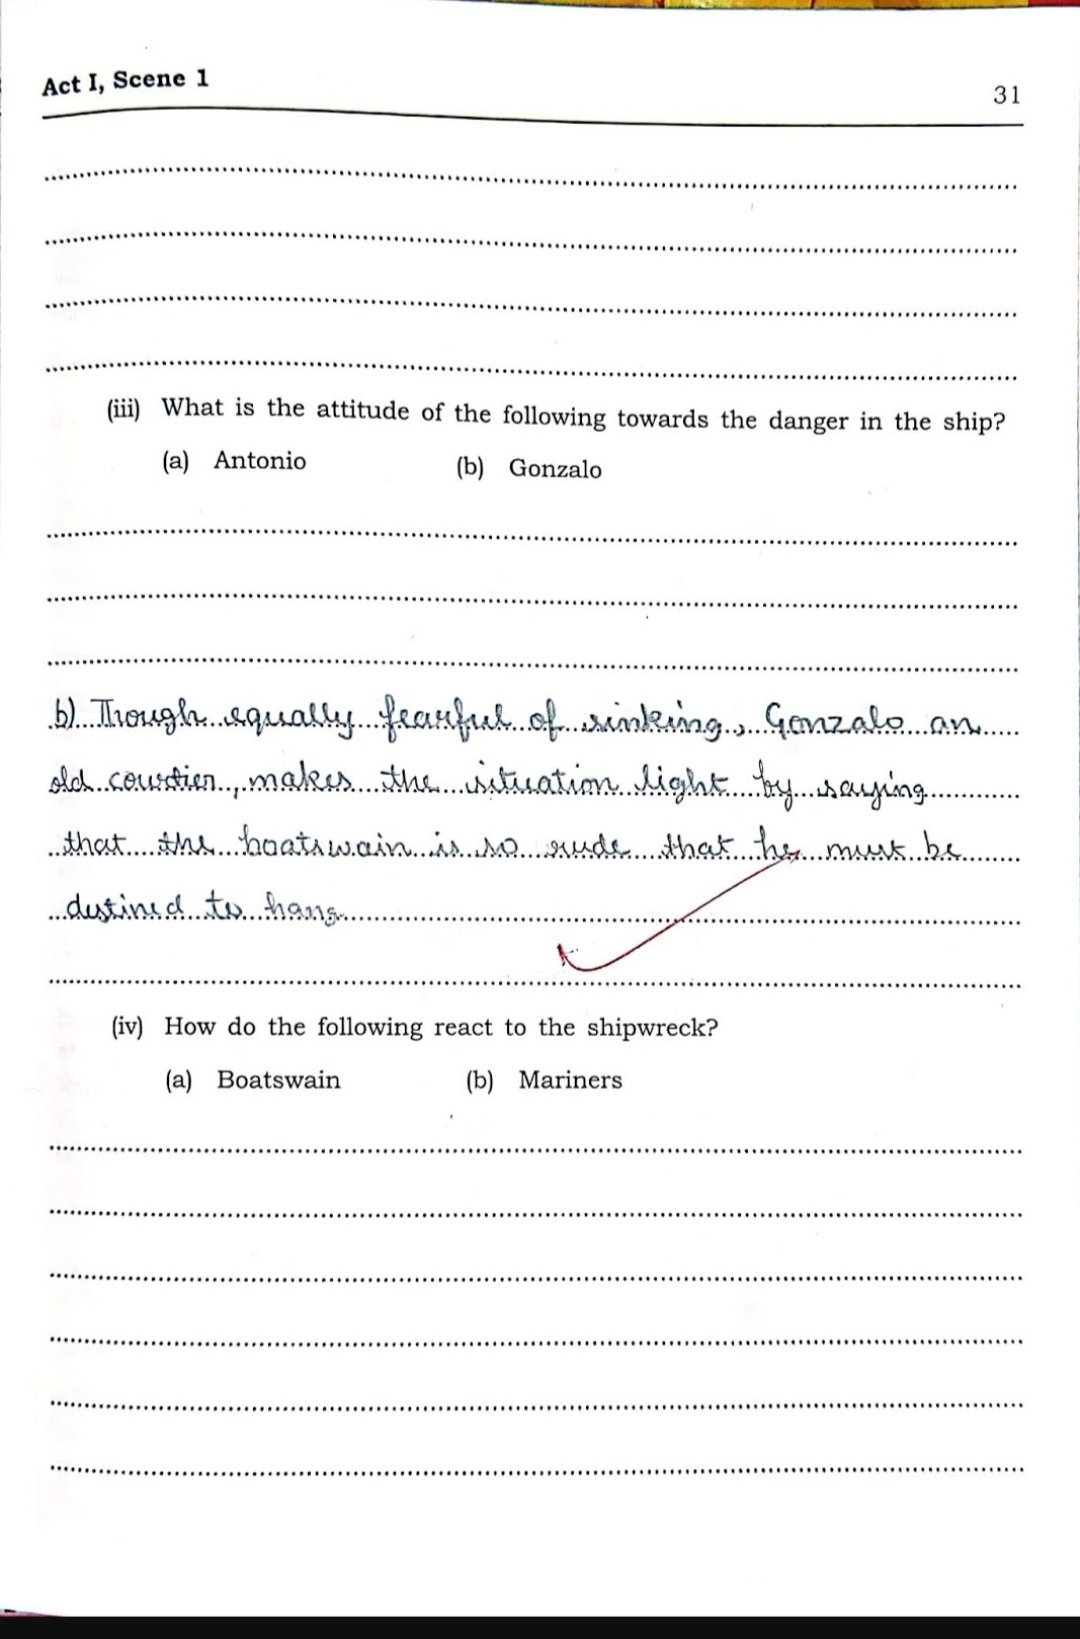 Act I, Scene 1
31
(iii) What is the attitude of the following towards the danger in the ship?
(a) Antonio (b) Gonzalo
b) Though equally fearful of sinking, Gonzalo an
old courtier, makes the situation light by saying
that the boatswain is so rude that he must be
destined to hang.
(iv) How do the following react to the shipwreck?
(a) Boatswain (b) Mariners